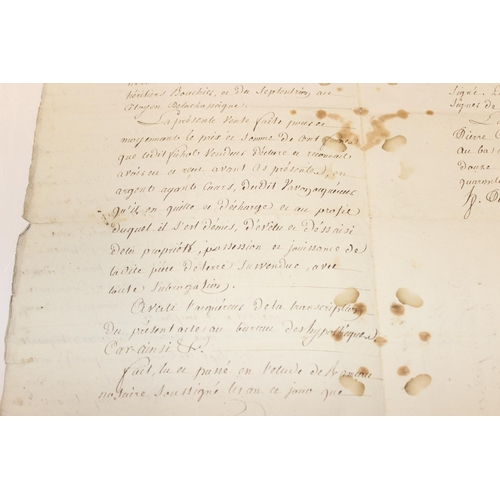 héritiers Bouchés, et du Septentrion, au
Citoyen Delachassaigne.
La présente Vente faite pour et
moyennant le prix et somme de Cent
que ledit vendeur déclare et reconnait
avoir eu et reçu avant ces présentes, en
argent ayant Cours, dudit acquéreur
qu'il en quitte et décharge et au profit
duquel il s'est démis, dévêtu et déssaisi
de la propriété, possession et jouissance de
ladite pièce de terre Susvendue, avec
toute Subrogation.
Averti l'acquéreur de la transcription
du présent acte, au bureau des hypothèques,
Car ainsi &c.
fait, lu et passé en l'étude de
notaire Soussigné les an et jour que
Signé,
Signes de
Pierre
au bas
douze
quarante